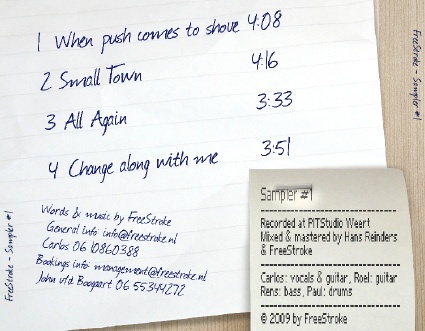 1 When push comes to shove 4:08
2 Small Town 4:16
3 All Again 3:33
4 Change along with me 3:51
Words & music by FreeStroke
General info: info@freestroke.nl
Carlos 06 10860388
Bookings info: management@freestroke.nl
John v/d Boogaart 06 55344272
FreeStroke - Sampler #1
FreeStroke - Sampler #1
Sampler #1
Recorded at PITStudio Weert
Mixed & mastered by Hans Reinders
& FreeStroke
Carlos: vocals & guitar, Roel: guitar
Rens: bass, Paul: drums
© 2009 by FreeStroke